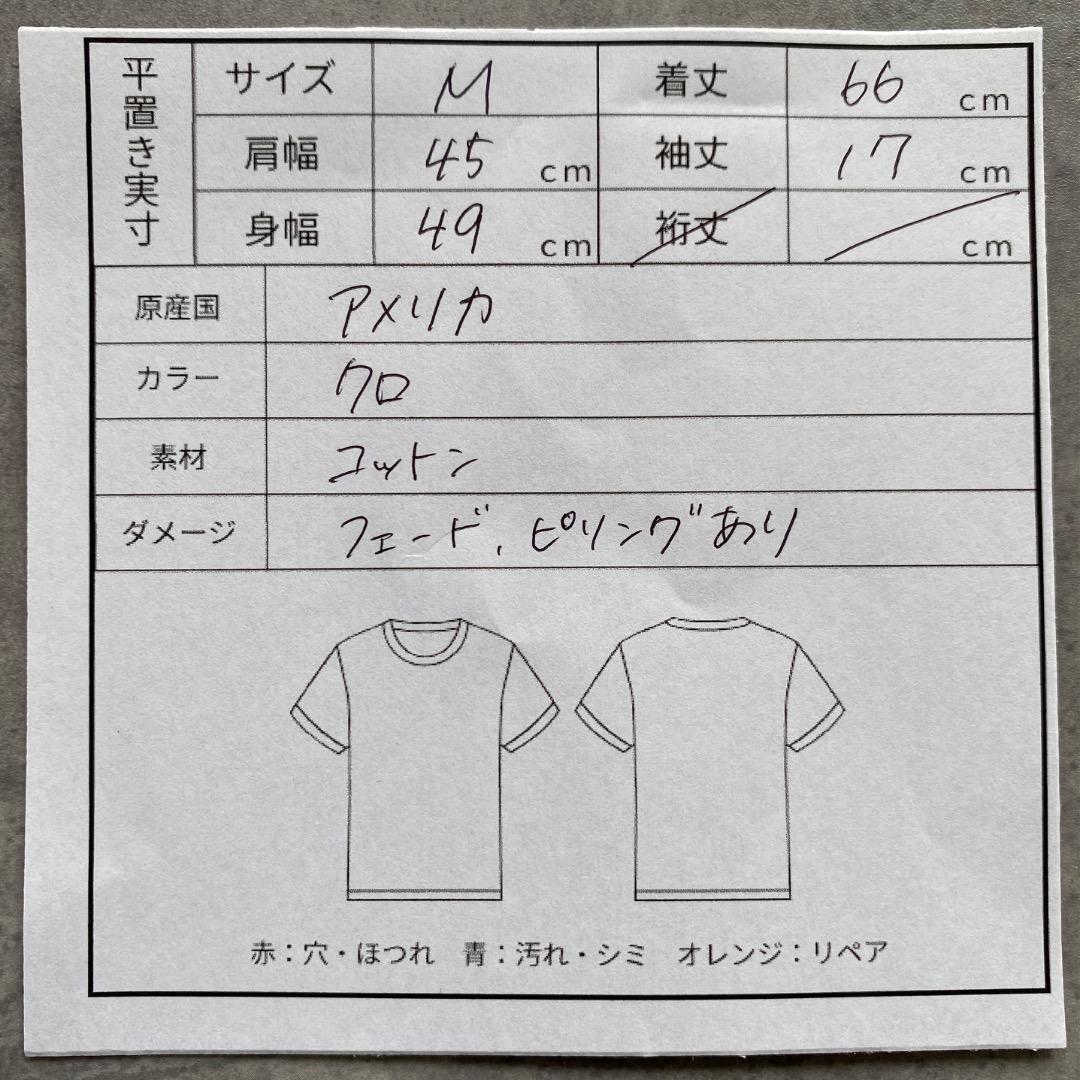 平置き実寸
サイズ M 着丈 66 cm
肩幅 45 cm 袖丈 17 cm
身幅 49 cm 裄丈 cm
原産国 アメリカ
カラー クロ
素材 コットン
ダメージ フェード、ピリングあり
赤：穴・ほつれ 青：汚れ・シミ オレンジ：リペア